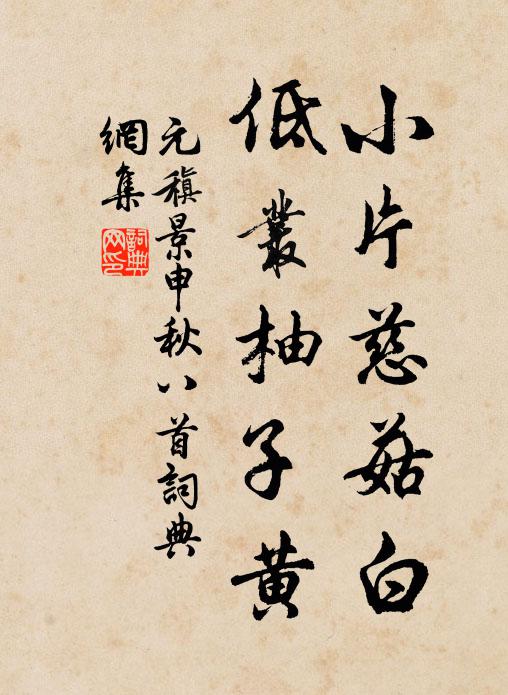 小片慈菇白
低叢柚子黄
元稹景申秋八首詞典
網集
詞典網印